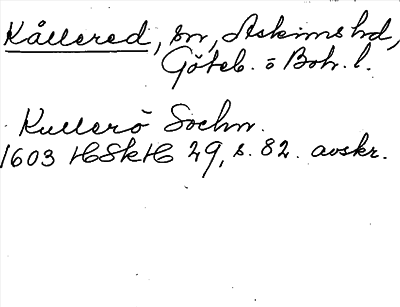 Kållered, sn, Askims hd,
Göteb. o Boh. l.
Kullerö Sochn.
1603 HSkH 29, s. 82. avskr.